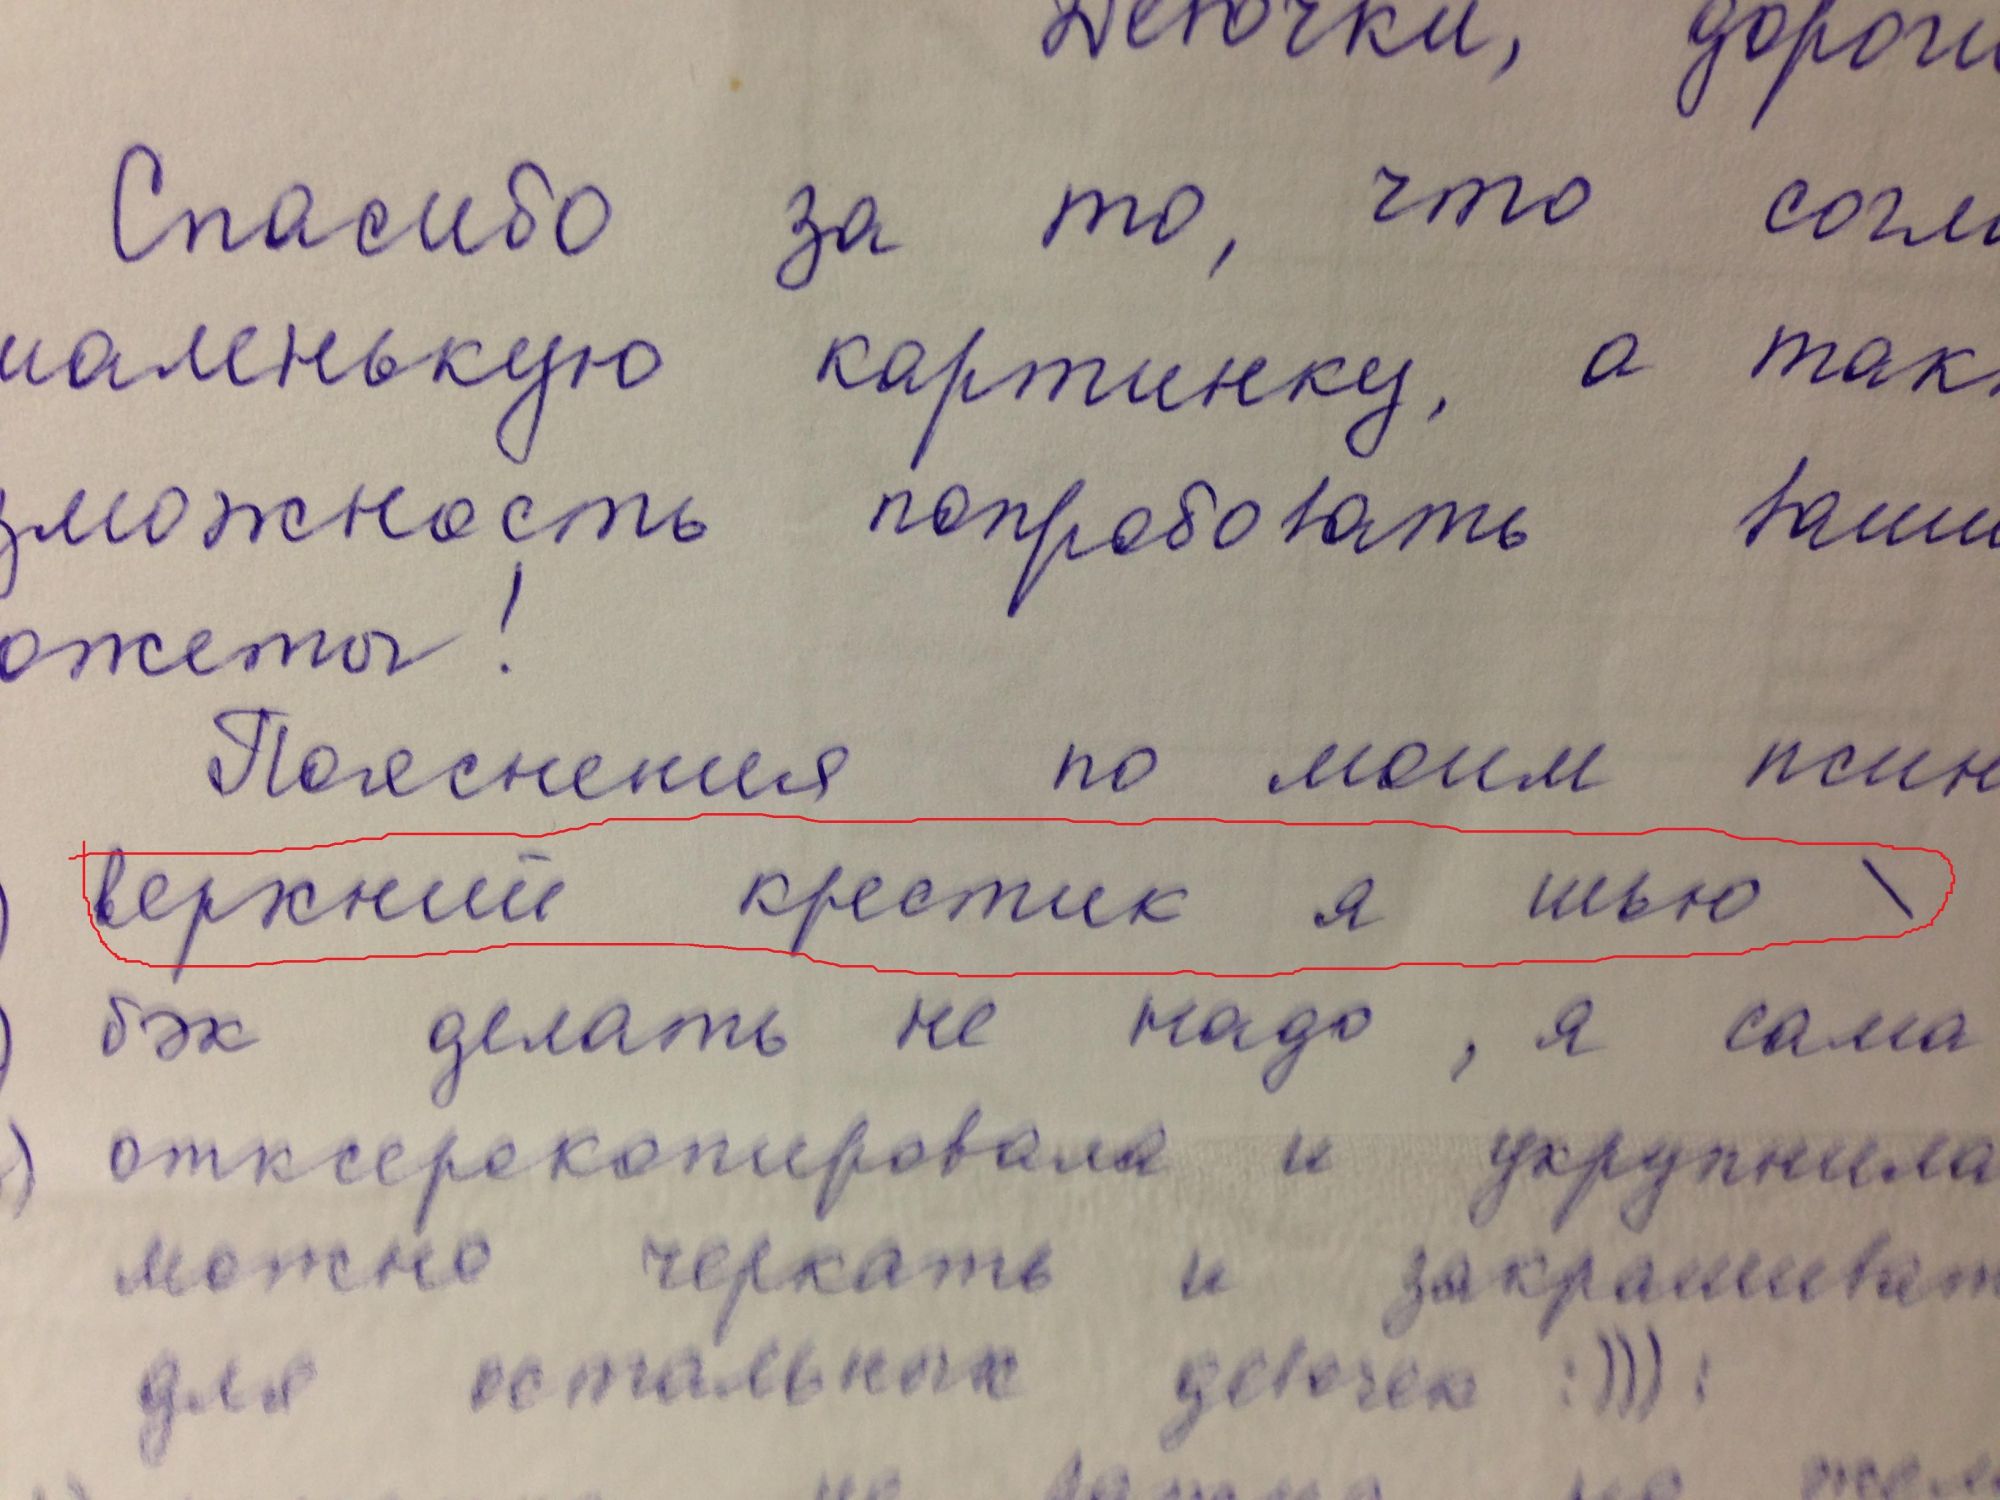 Девочки, дороги
Спасибо за то, что согла
маленькую картинку, а так
зможность попробовать ваши
южеты!
Пояснения по моим
верхний крестик я шью \
) бэк делать не надо, я сама
) отксерокопировала и укрупнила
можно черкать и закрашиват
для остальных девочек :))):